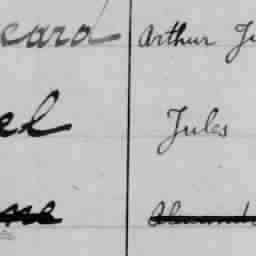 eard Arthur Ju
el Jules
ne